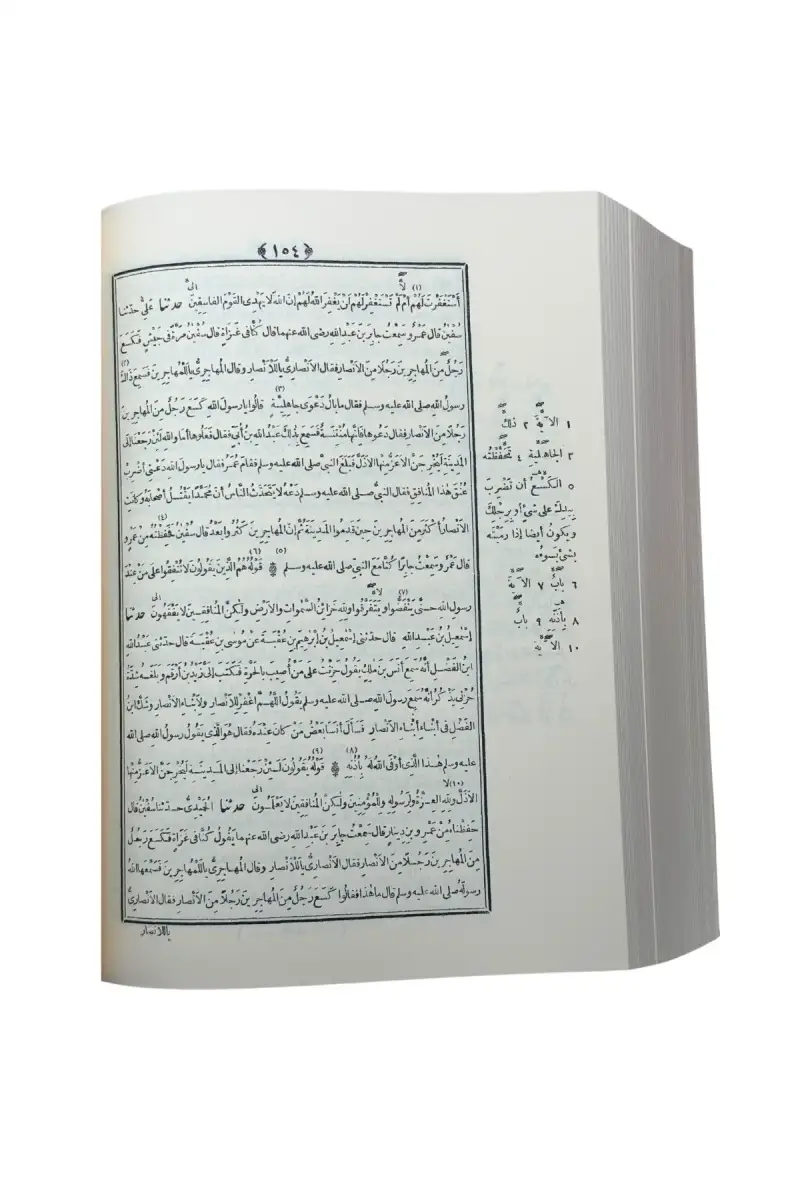 ﴿١٥٤﴾
أَسْتَغْفَرْتَ لَهُمْ أَمْ لَمْ تَسْتَغْفِرْ لَهُمْ لَنْ يَغْفِرَ اللهُ لَهُمْ إِنَّ اللهَ لَا يَهْدِى الْقَوْمَ الْفَاسِقِينَ حدثنا عَلِىٌّ حدثنا
سُفْيٰنُ قال عَمْرٌو سَمِعْتُ جابِرَ بنَ عَبْدِ اللهِ رضى الله عنهما قال كُنَّا فى غَزَاةٍ قال سُفْيٰنُ مَرَّةً فى جَيْشٍ فَكَسَعَ
رَجُلٌ مِنَ المُهاجِرِينَ رَجُلًا مِنَ الأَنْصارِ فقال الأَنْصارِىُّ يا لَلْأَنْصارِ وقال المُهاجِرِىُّ يا لَلْمُهاجِرِينَ فَسَمِعَ ذاكَ
رسولُ اللهِ صلى الله عليه وسلم فقال ما بالُ دَعْوَى جاهِلِيَّةٍ قالوا يا رسولَ اللهِ كَسَعَ رَجُلٌ مِنَ المُهاجِرِينَ
رَجُلًا مِنَ الأَنْصارِ فقال دَعُوها فَإِنَّها مُنْتِنَةٌ فَسَمِعَ بِذلِكَ عَبْدُ اللهِ بنُ أُبَىٍّ فقال فَعَلُوها أَما واللهِ لَئِنْ رَجَعْنا إلى
المَدِينَةِ لَيُخْرِجَنَّ الأَعَزُّ مِنْها الأَذَلَّ فَبَلَغَ النبىَّ صلى الله عليه وسلم فقامَ عُمَرُ فقال يا رسولَ اللهِ دَعْنِى أَضْرِبْ
عُنُقَ هذا المُنافِقِ فقال النبىُّ صلى الله عليه وسلم دَعْهُ لا يَتَحَدَّثُ النَّاسُ أَنَّ مُحَمَّدًا يَقْتُلُ أَصْحابَهُ وكانَتِ
الأَنْصارُ أَكْثَرَ مِنَ المُهاجِرِينَ حِينَ قَدِمُوا المَدِينَةَ ثُمَّ إِنَّ المُهاجِرِينَ كَثُرُوا بَعْدُ قال سُفْيٰنُ فَحَفِظْتُهُ مِنْ عَمْرٍو
قال عَمْرٌو سَمِعْتُ جابِرًا كُنَّا مَعَ النبىِّ صلى الله عليه وسلم قَوْلُهُ هُمُ الَّذِينَ يَقُولُونَ لا تُنْفِقُوا عَلَى مَنْ عِنْدَ
رسولِ اللهِ حَتَّى يَنْفَضُّوا يَتَفَرَّقُوا ولِلهِ خَزائِنُ السَّمٰواتِ والأَرْضِ ولٰكِنَّ المُنافِقِينَ لا يَفْقَهُونَ حدثنا
إِسْمٰعِيلُ بنُ عَبْدِ اللهِ قال حدثنى إِسْمٰعِيلُ بنُ إِبْرٰهِيمَ بنِ عُقْبَةَ عَنْ مُوسَى بنِ عُقْبَةَ قال حدثنى عَبْدُ اللهِ
ابنُ الفَضْلِ أَنَّهُ سَمِعَ أَنَسَ بنَ مٰلِكٍ يَقُولُ حَزِنْتُ عَلَى مَنْ أُصِيبَ بِالحَرَّةِ فَكَتَبَ إِلَىَّ زَيْدُ بنُ أَرْقَمَ وبَلَغَهُ شِدَّةُ
حُزْنِى يَذْكُرُ أَنَّهُ سَمِعَ رسولَ اللهِ صلى الله عليه وسلم يَقُولُ اللَّهُمَّ اغْفِرْ لِلأَنْصارِ ولأَبْناءِ الأَنْصارِ وشَكَّ ابنُ
الفَضْلِ فى أَبْناءِ أَبْناءِ الأَنْصارِ فَسَأَلَ أَنَسًا بَعْضُ مَنْ كانَ عِنْدَهُ فقال هُوَ الَّذِى يَقُولُ رسولُ اللهِ صلى الله
عليه وسلم هٰذا الَّذِى أَوْفَى اللهُ لَهُ بِأُذُنِهِ قَوْلُهُ يَقُولُونَ لَئِنْ رَجَعْنا إلى المَدِينَةِ لَيُخْرِجَنَّ الأَعَزُّ مِنْها
الأَذَلَّ ولِلهِ العِزَّةُ ولِرَسُولِهِ ولِلْمُؤْمِنِينَ ولٰكِنَّ المُنافِقِينَ لا يَعْلَمُونَ حدثنا الحُمَيْدِىُّ حدثنا سُفْيٰنُ قال
حَفِظْناهُ مِنْ عَمْرِو بنِ دِينارٍ قال سَمِعْتُ جابِرَ بنَ عَبْدِ اللهِ رضى الله عنهما يَقُولُ كُنَّا فى غَزَاةٍ فَكَسَعَ رَجُلٌ
مِنَ المُهاجِرِينَ رَجُلًا مِنَ الأَنْصارِ فقال الأَنْصارِىُّ يا لَلْأَنْصارِ وقال المُهاجِرِىُّ يا لَلْمُهاجِرِينَ فَسَمَّعَها اللهُ
رسولَهُ صلى الله عليه وسلم قال ما هٰذا فقالوا كَسَعَ رَجُلٌ مِنَ المُهاجِرِينَ رَجُلًا مِنَ الأَنْصارِ فقال الأَنْصارِىُّ
يا للأنصار
١ الآيَةَ ٢ ذلِكَ
٣ الجاهِلِيَّةِ ٤ تَحَفَّظْتُهُ
٥ الكَسْعُ أن تَضْرِبَ
بِيَدِكَ على شَىْءٍ أو بِرِجْلِكَ
ويكونُ أيضا إذا رَمَيْتَهُ
بِشَىْءٍ يَسُوءُهُ
٦ بابُ ٧ الآيَةَ
٨ بِأُذُنِهِ ٩ بابُ
١٠ الآيَةَ